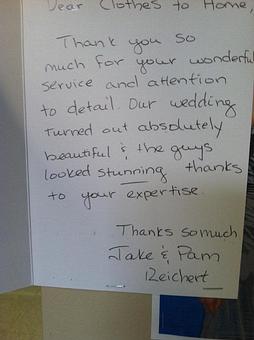 Dear Clothes to Home,
Thank you so
much for your wonderful
service and attention
to detail. Our wedding
turned out absolutely
beautiful & the guys
looked stunning thanks
to your expertise.
Thanks so much
Jake & Pam
Reichert